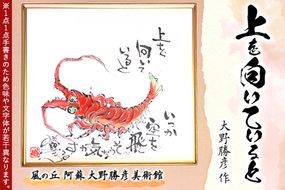 上を向いていこう
大野勝彦 作
上を
向いて
いこう
いつか
空を
飛
風の丘 阿蘇 大野勝彦美術館
※１点１点手書きのため色味や文字体が若干異なります。